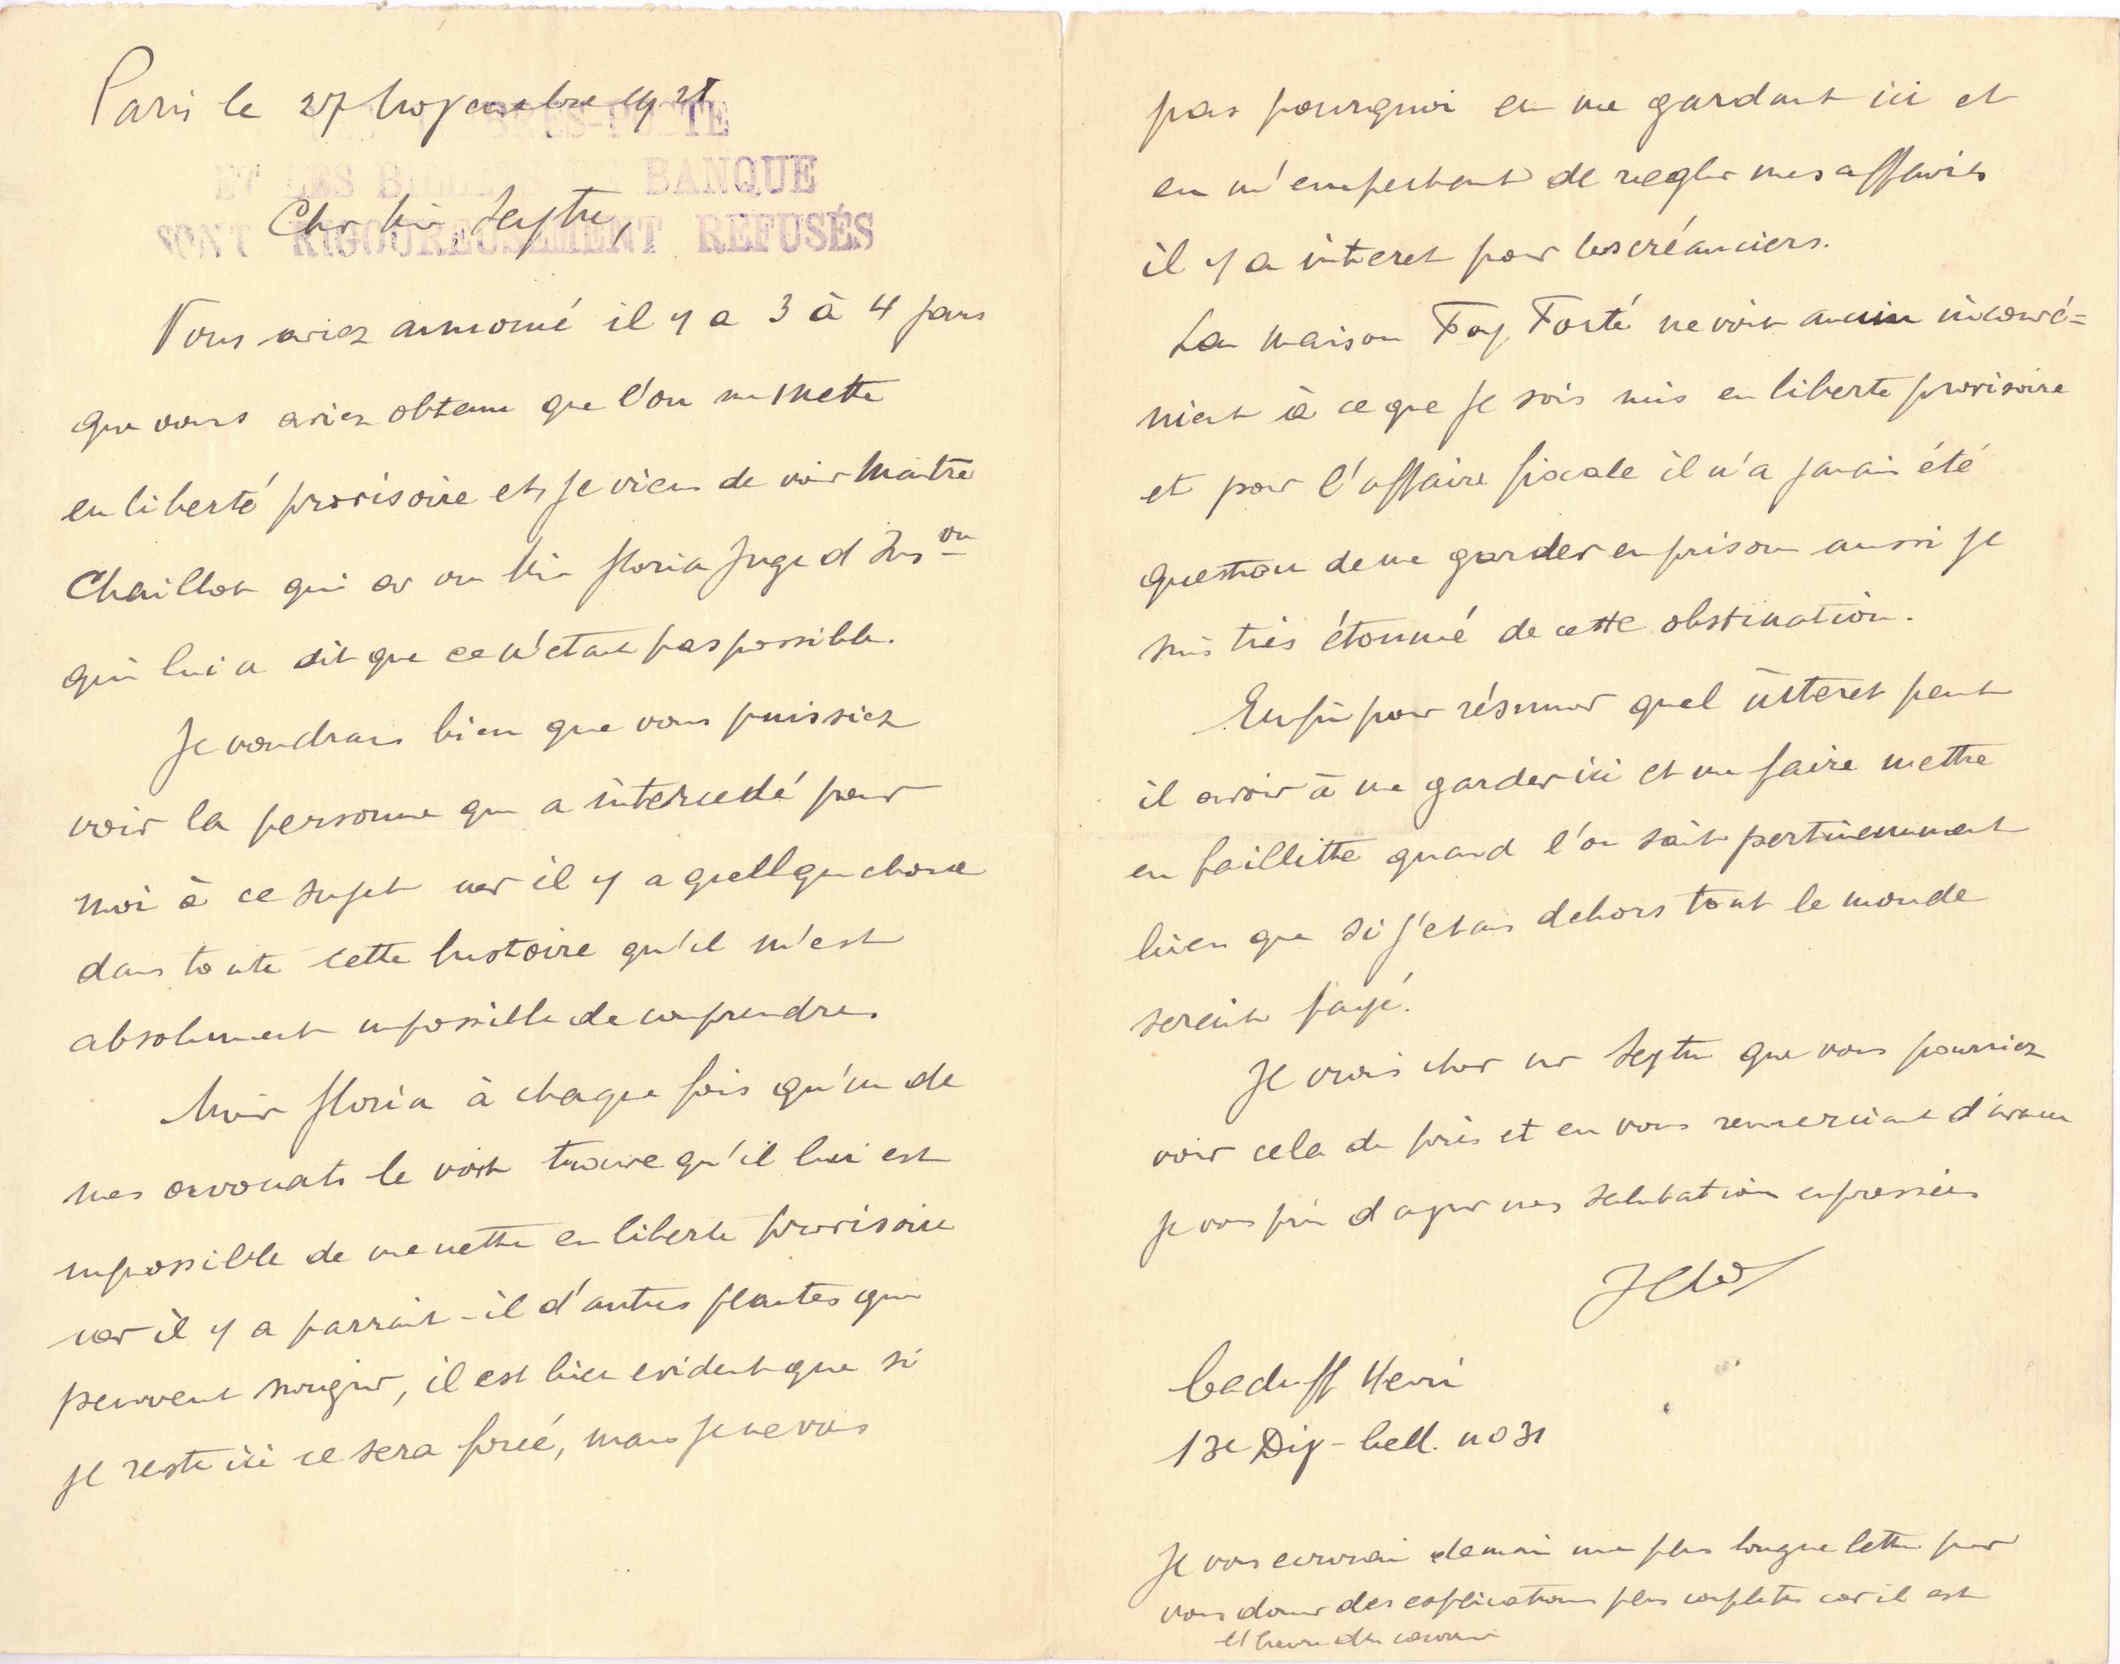 Paris le 27 Novembre 19
TIMBRES-POSTE
ET LES BILLETS DE BANQUE
SONT RIGOUREUSEMENT REFUSÉS
Cher
Vous aviez annoncé il y a 3 à 4 jours
que vous aviez obtenu que l'on me mette
en liberté provisoire et je viens de voir Maitre
Chaillot qui a vu Mr Floria Juge d'Inson
qui lui a dit que ce n'etait pas possible.
Je voudrais bien que vous puissiez
voir la personne qui a intercedé pour
moi à ce sujet car il y a quellque chose
dans toute cette histoire qu'il m'est
absolument impossible de comprendre.
Floria à chaque fois qu'un de
mes avocats le voit trouve qu'il lui est
impossible de me mettre en liberte provisoire
car il y a parrait-il d'autres plaintes qui
peuvent surgir, il est bien evident que si
je reste ici ce sera forcé, mais je ne vois
pas pourquoi en me gardant ici et
en m'empechant de regler mes affaires
il y a interet pour les créanciers.
La Maison ne voit aucun inconvé=
nient à ce que je sois mis en liberte provisoire
et pour l'affaire fiscale il n'a jamais été
question de me garder en prison aussi je
suis très étonné de cette obstination.
Enfin pour résumer quel interet peut
il avoir à me garder ici et me faire mettre
en faillitte quand l'on sait pertinemment
bien que si j'etais dehors tout le monde
serait payé.
Je crois cher Mr que vous pourriez
voir cela de près et en vous remerciant d'avance
je vous prie d'agréer mes salutations empressées
Henri
13e Div - Cell. no 31
Je vous ecrirai demain une plus longue lettre pour
vous donner des explications plus completes car il est
l'heure du courrier